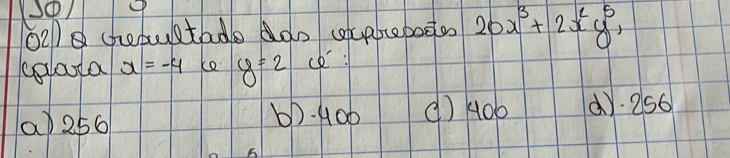 02) O resultado das expressões 20x³ + 2x²y⁵,
para x = -4 e y = 2 é :
a) 256 b) -400 c) 400 d) -256